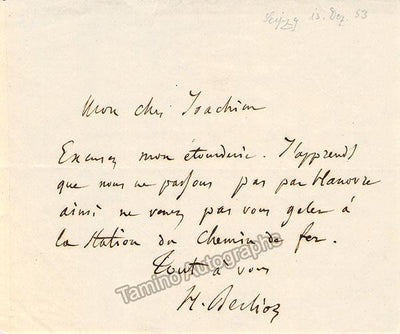 Leipzig 13. Dez. 53
Mon cher Joachim
Excusez mon étourderie. J'apprends
que nous ne passons pas par hanovre
ainsi ne venez pas vous geler à
la Station du Chemin de fer.
Tout à vous
H. Berlioz
Tamino Autographs